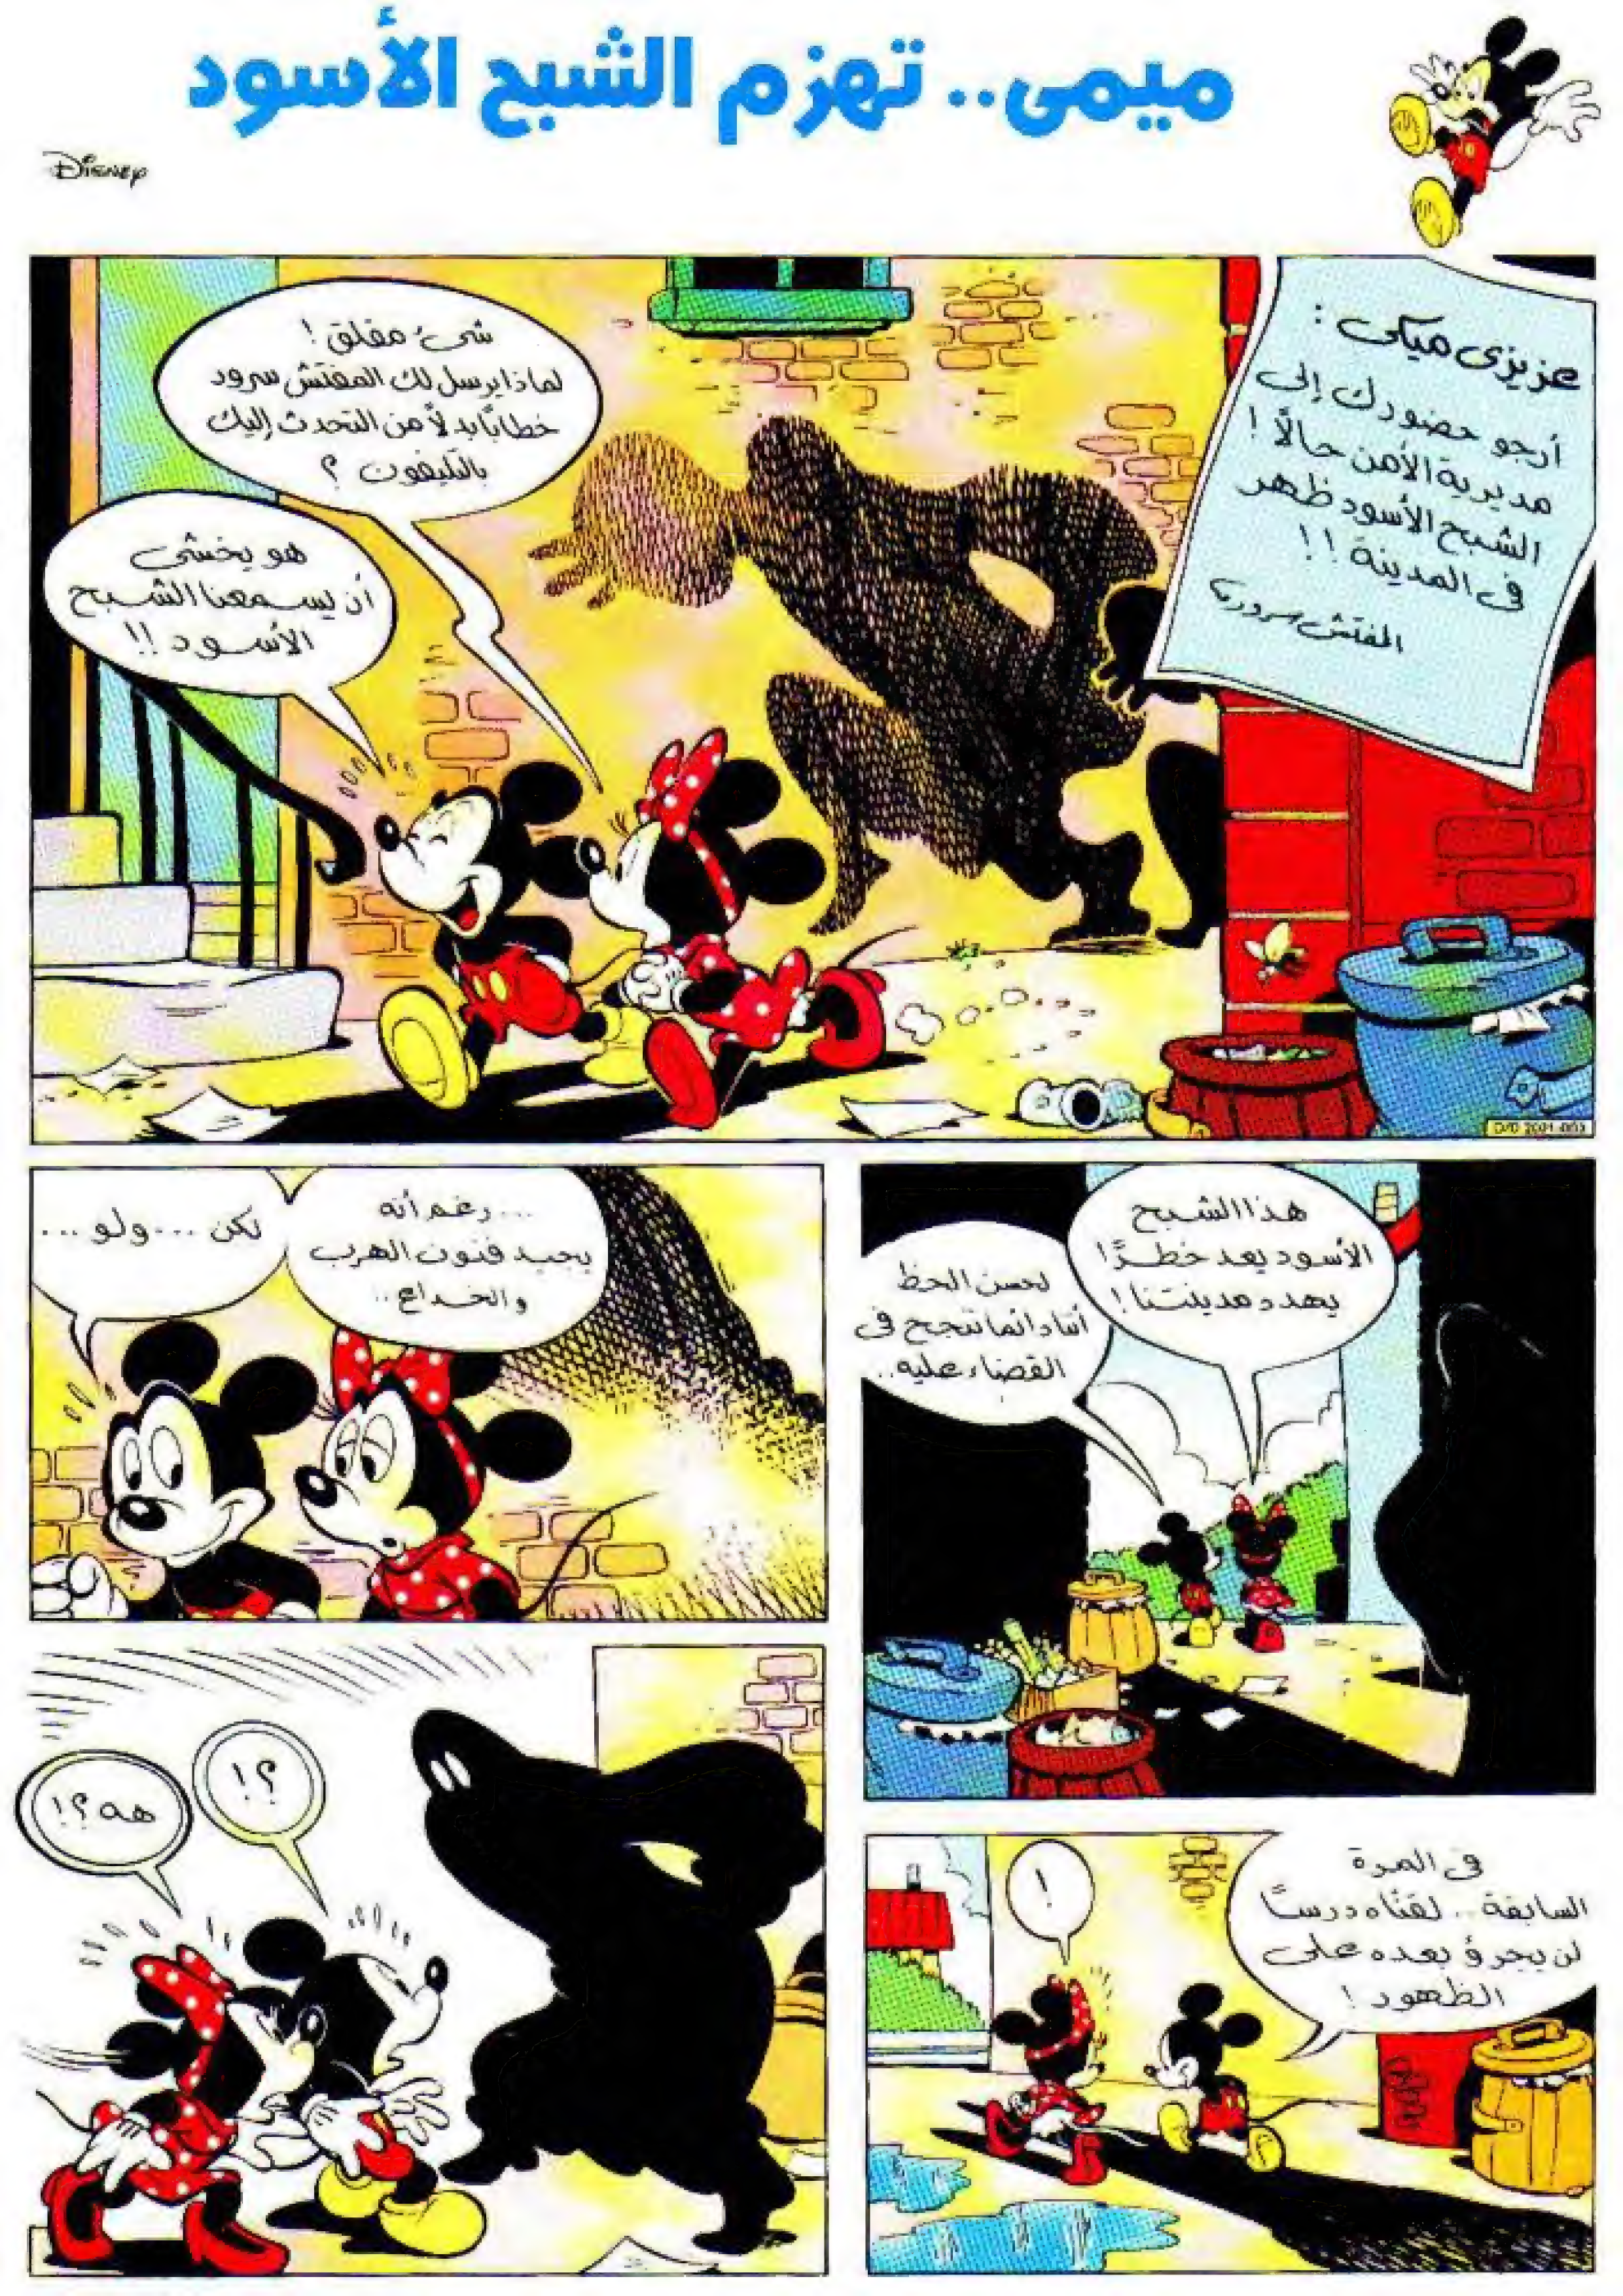 ميمى.. تهزم الشبح الأسود
Disney
عزيزى ميكى :
أرجو حضورك إلى
مديرية الأمن حالاً !
الشبح الأسود ظهر
فى المدينة !!
المفتش سرور
شىء مقلق !
لماذا يرسل لك المفتش سرور
خطابًا بدلاً من التحدث إليك
بالتليفون ؟
هو يخشى
أن يسمعنا الشبح
الأسود !!
هذا الشبح
الأسود يعد خطرًا
يهدد مدينتنا !
لحسن الحظ
أننا دائما ننجح فى
القضاء عليه..
...رغم أنه
يجيد فنون الهرب
والخداع..
لكن ... ولو ...
فى المرة
السابقة.. لقناه درسًا
لن يجرؤ بعده على
الظهور !
!
؟!
هه ؟!